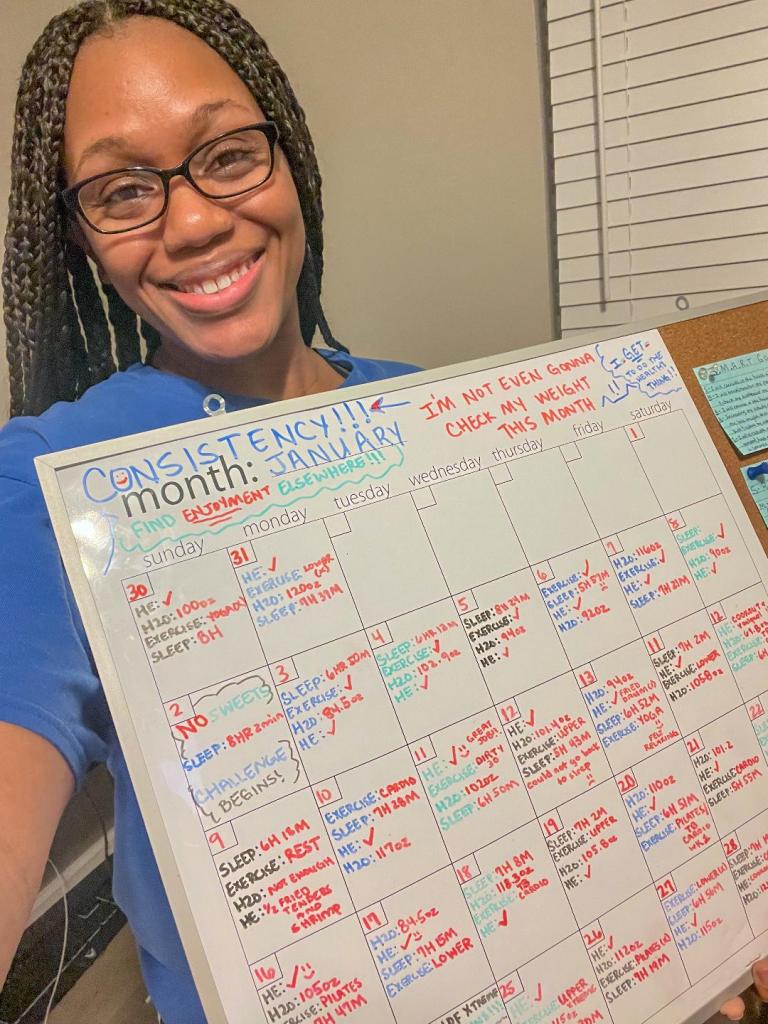 CONSISTENCY!!!
month: JANUARY
FIND ENJOYMENT ELSEWHERE!!!
I'M NOT EVEN GONNA
CHECK MY WEIGHT
THIS MONTH
I GET
TO DO THE
HEALTHY
THING!!
S.M.A.R.T.
sunday monday tuesday wednesday thursday friday saturday
1
30
HE: ✓
H2O: 100oz
EXERCISE: YOGA
SLEEP: 8H
31
HE: ✓
EXERCISE: LOWER
H2O: 120oz
SLEEP: 7H 39M
2
NO SWEETS
SLEEP: 8HR 2min
CHALLENGE
BEGINS!
3
SLEEP: 6HR
EXERCISE: ✓
H2O: 84.5oz
HE: ✓
4
SLEEP: 6HR 12M
EXERCISE: ✓
H2O: 102.9oz
HE: ✓
5
SLEEP: 8H 29M
EXERCISE: ✓
H2O: 94oz
HE: ✓
6
EXERCISE: ✓
SLEEP: 5H 57M
HE: ✓
H2O: 92oz
7
H2O: 116oz
EXERCISE: ✓
HE: ✓
SLEEP: 7H 21M
8
SLEEP:
EXERCISE: ✓
H2O: 90oz
HE: ✓
9
SLEEP: 6H 18M
EXERCISE: REST
H2O: NOT ENOUGH
HE: 1/2 FRIED
TENDERS
AND
SHRIMP
10
EXERCISE: CARDIO
SLEEP: 7H 28M
HE: ✓
H2O: 117oz
11
HE: ✓ GREAT
JOB!!
EXERCISE: DIRTY
30
H2O: 102oz
SLEEP: 6H 50M
12
HE: ✓
H2O: 101.4oz
EXERCISE: UPPER
SLEEP: 5H 43M
could not go back
to sleep
13
H2O: 94oz
HE: ✓ FRIED
SLEEP: 6H 52M
EXERCISE: YOGA
FELT
RELAXING
11
SLEEP: 7H 2M
HE: ✓
EXERCISE: LOWER
H2O: 105.8oz
12
HE:
H2O:
EXERCISE:
SLEEP:
16
HE: ✓
H2O: 105oz
EXERCISE: PILATES
7H 47M
17
H2O: 84.5oz
HE: ✓
SLEEP: 7H 15M
EXERCISE: LOWER
18
SLEEP: 7H 8M
H2O: 118.3oz
EXERCISE: T3
CARDIO
HE: ✓
19
SLEEP: 7H 2M
EXERCISE: UPPER
H2O: 105.8oz
HE: ✓
20
H2O: 110oz
HE: ✓
SLEEP: 6H 51M
EXERCISE: PILATES/
T3
CARDIO
WK1
21
H2O: 101.2
HE: ✓
EXERCISE: CARDIO
SLEEP: 5H 55M
22
XTREME
25
HE: ✓
UPPER
26
HE: ✓
H2O: 112oz
EXERCISE: PILATES
SLEEP: 7H 19M
27
EXERCISE: LOWER
SLEEP: 6H 56M
HE: ✓
H2O: 115oz
28
SLEEP:
EXERCISE:
HE:
H2O: